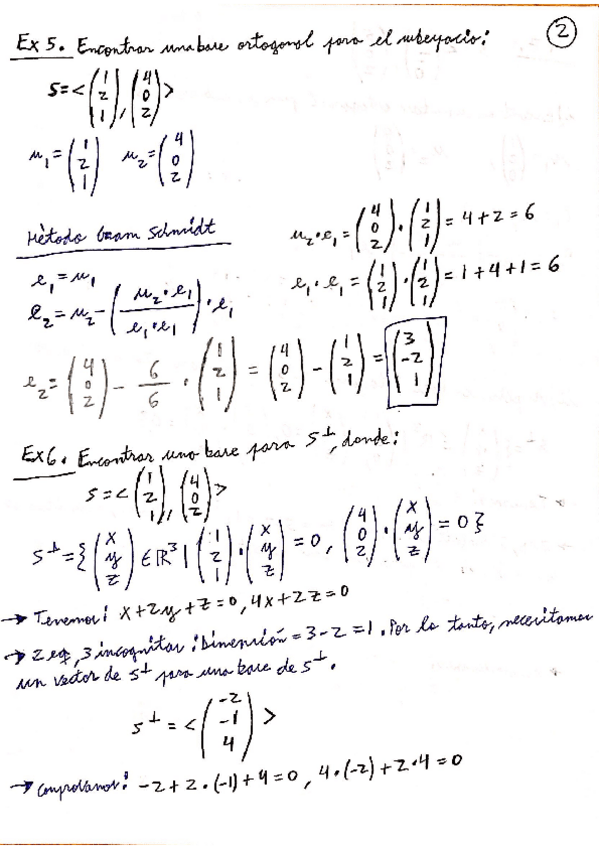 2
Ex 5. Encontrar una base ortogonal para el subespacio:
S=<(1 2 1), (4 0 2)>
u₁=(1 2 1) u₂=(4 0 2)
Método Gram Schmidt
u₂·e₁=(4 0 2)·(1 2 1)=4+2=6
e₁=u₁
e₁·e₁=(1 2 1)·(1 2 1)=1+4+1=6
e₂=u₂-(u₂·e₁/e₁·e₁)·e₁
e₂=(4 0 2)-6/6·(1 2 1)=(4 0 2)-(1 2 1)=(3 -2 1)
Ex 6. Encontrar una base para S⊥, donde:
S=<(1 2 1), (4 0 2)>
S⊥={(x y z)∈ℝ³|(1 2 1)·(x y z)=0, (4 0 2)·(x y z)=0}
→ Tenemos: x+2y+z=0, 4x+2z=0
→ 2 eq, 3 incognitas: Dimensión=3-2=1. Por lo tanto, necesitamos
un vector de S⊥ para una base de S⊥.
S⊥=<(-2 -1 4)>
→ Comprobamos: -2+2·(-1)+4=0, 4·(-2)+2·4=0